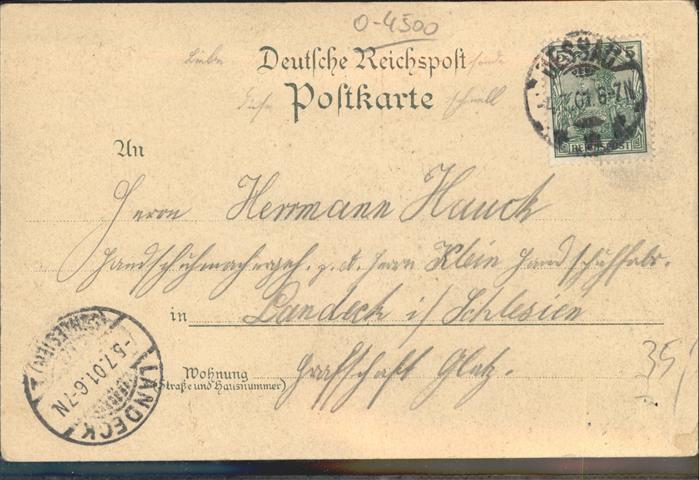 O-4500
Liebe Deutsche Reichspost sende
diese Postkarte schnell
DESSAU
5
REICHSPOST
.7.01.6-7N
An
Herrn Herrmann Hauck
Handschuhmachergeh. z. d. Herrn Klein Handschuhfabr.
in Landeck i/ Schlesien
Wohnung Grafschaft Glatz.
(Straße und Hausnummer)
35/
LANDECK
-5.7.01.6-7N
(SCHLESIEN)